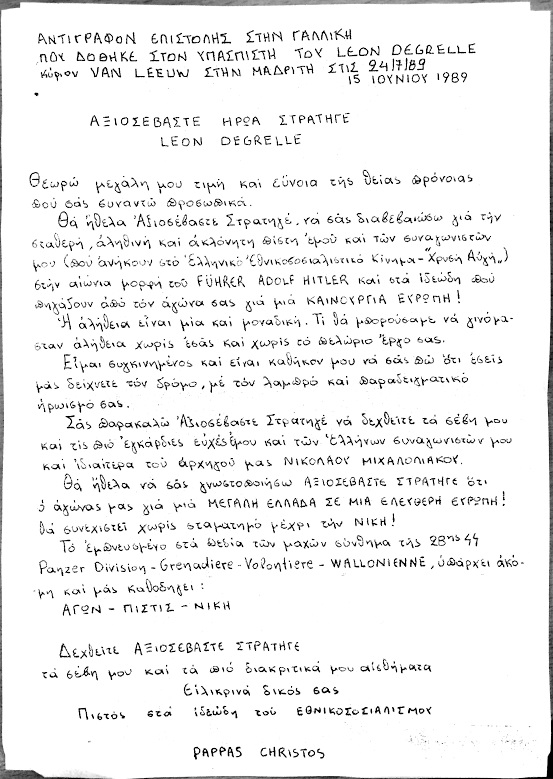 ΑΝΤΙΓΡΑΦΟΝ ΕΠΙΣΤΟΛΗΣ ΣΤΗΝ ΓΑΛΛΙΚΗ
ΠΟΥ ΔΟΘΗΚΕ ΣΤΟΝ ΥΠΑΣΠΙΣΤΗ ΤΟΥ LEON DEGRELLE
κύριον VAN LEEUW ΣΤΗΝ ΜΑΔΡΙΤΗ ΣΤΙΣ 24/7/89
15 ΙΟΥΝΙΟΥ 1989
ΑΞΙΟΣΕΒΑΣΤΕ ΗΡΩΑ ΣΤΡΑΤΗΓΕ
LEON DEGRELLE
Θεωρώ μεγάλη μου τιμή και εύνοια τής θείας πρόνοιας
πού σάς συναντώ προσωπικά.
Θά ήθελα Ἀξιοσέβαστε Στρατηγέ, νά σάς διαβεβαιώσω γιά τήν
σταθερή, ἀληθινή καί ἀκλόνητη πίστη ἐμού καί τών συναγωνιστών
μου (πού ἀνήκουν στό Ἑλληνικό Ἐθνικοσοσιαλιστικό Κίνημα-"Χρυσή Αὐγή")
στήν αἰώνια μορφή τού FÜHRER ADOLF HITLER καί στά ἰδεώδη πού
πηγάζουν ἀπό τόν ἀγώνα σας γιά μιά ΚΑΙΝΟΥΡΓΙΑ ΕΥΡΩΠΗ!
Ἡ ἀλήθεια εἶναι μία καί μοναδική. Τί θά μπορούσαμε νά γινόμα-
σταν ἀλήθεια χωρίς ἐσάς καί χωρίς τό πελώριο ἔργο σας.
Εἶμαι συγκινημένος καί εἶναι καθήκον μου νά σάς πώ ὅτι ἐσείς
μάς δείχνετε τόν δρόμο, μέ τόν λαμπρό καί παραδειγματικό
ἡρωισμό σας.
Σάς παρακαλώ Ἀξιοσέβαστε Στρατηγέ νά δεχθείτε τά σέβη μου
καί τίς πιό ἐγκάρδιες εὐχές ἐμου καί τών Ἑλλήνων συναγωνιστών μου
καί ἰδιαίτερα τού ἀρχηγού μας ΝΙΚΟΛΑΟΥ ΜΙΧΑΛΟΛΙΑΚΟΥ.
Θά ἤθελα νά σάς γνωστοποιήσω ΑΞΙΟΣΕΒΑΣΤΕ ΣΤΡΑΤΗΓΕ ὅτι
ὁ ἀγώνας μας γιά μιά ΜΕΓΑΛΗ ΕΛΛΑΔΑ ΣΕ ΜΙΑ ΕΛΕΥΘΕΡΗ ΕΥΡΩΠΗ!
θά συνεχιστεί χωρίς σταματημό μέχρι τήν ΝΙΚΗ!
Τό ἐμπνευσμένο στά πεδία τών μαχών σύνθημα τής 28ης 44
Panzer Division - Grenadiere - Volontiere - WALLONIENNE, ὑπάρχει ἀκό-
μη καί μάς καθοδηγεί:
ΑΓΩΝ - ΠΙΣΤΙΣ - ΝΙΚΗ
Δεχθείτε ΑΞΙΟΣΕΒΑΣΤΕ ΣΤΡΑΤΗΓΕ
τά σέβη μου καί τά πιό διακριτικά μου αἰσθήματα
Εἰλικρινά δικός σας
Πιστός στά ἰδεώδη τού ΕΘΝΙΚΟΣΟΣΙΑΛΙΣΜΟΥ
PAPPAS CHRISTOS